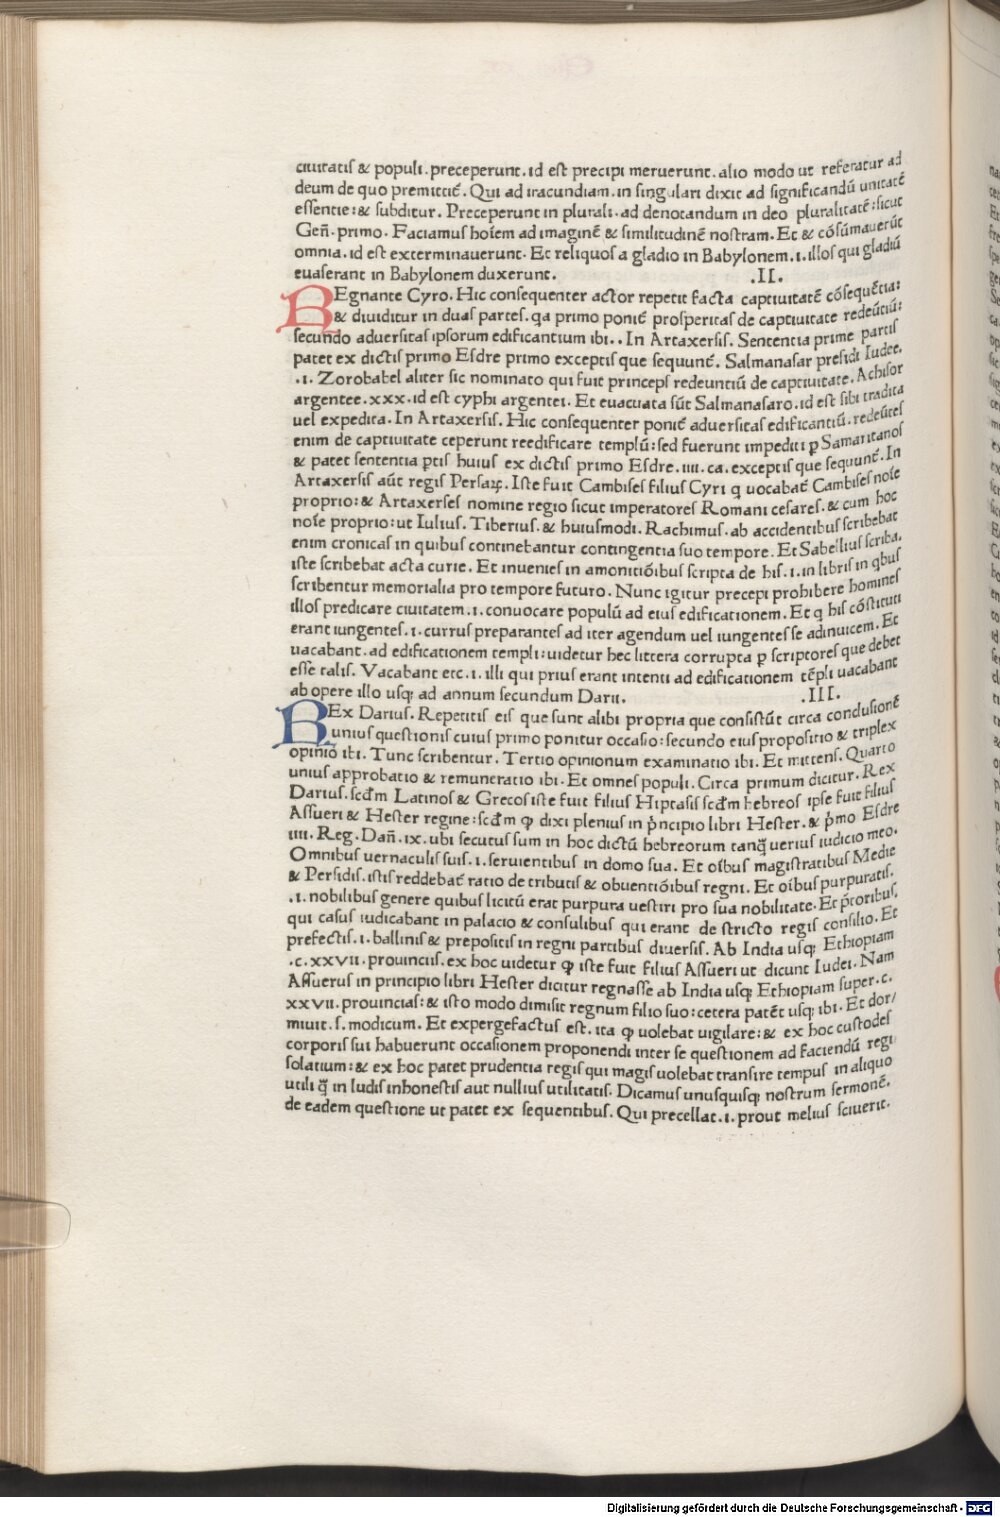 ciuitatis & populi. preceperunt. id est precipi meruerunt. alio modo ut referatur ad
deum de quo premittit̄. Qui ad iracundiam. in singulari dixit ad significandū unitatē
essentie: & subditur. Preceperunt in plurali. ad denotandum in deo pluralitatē: sicut
Geñ. primo. Faciamus hoīem ad imaginē & similitudinē nostram. Et & cōsūmauerūt
omnia. id est exterminauerunt. Et reliquos a gladio in Babylonem .i. illos qui gladiū
euaserant in Babylonem duxerunt. .II.
REgnante Cyro. Hic consequenter actor repetit facta captiuitatē cōsequētia:
& diuiditur in duas partes. qa primo ponit̄ prosperitas de captiuitate redeūtiū:
secundo aduersitas ipsorum edificantium ibi.. In Artaxersis. Sententia prime partis
patet ex dictis primo Esdre primo exceptis que sequunt̄. Salmanasar presidi Iudee.
.i. Zorobabel aliter sic nominato qui fuit princeps redeuntiū de captiuitate. Achisor
argentee .xxx. id est cyphi argentei. Et euacuata sūt Salmanasaro. id est sibi tradita
uel expedita. In Artaxersis. Hic consequenter ponit̄ aduersitas edificantiū. redeūtes
enim de captiuitate ceperunt reedificare templū: sed fuerunt impediti ꝑ Samaritanos
& patet sententia ꝑtis huius ex dictis primo Esdre .iiii. ca. exceptis que sequunt̄. In
Artaxersis aūt regis Persaꝝ. Iste fuit Cambises filius Cyri q uocabat̄ Cambises noīe
proprio: & Artaxerses nomine regio sicut imperatores Romani cesares. & cum hoc
noīe proprio: ut Iulius. Tiberius. & huiusmodi. Rachimus. ab accidentibus scribebat
enim cronicas in quibus continebantur contingentia suo tempore. Et Sabellius scriba.
iste scribebat acta curie. Et inuenies in amonitiōibus scripta de his .i. in libris in qbus
scribentur memorialia pro tempore futuro. Nunc igitur precepi prohibere homines
illos predicare ciuitatem .i. conuocare populū ad eius edificationem. Et q his cōstituti
erant iungentes .i. currus preparantes ad iter agendum uel iungentes se adinuicem. Et
uacabant. ad edificationem templi: uidetur hec littera corrupta ꝑ scriptores que debet
esse talis. Vacabant etc .i. illi qui prius erant intenti ad edificationem tēpli uacabant
ab opere illo usqꝫ ad annum secundum Darii. .III.
REx Darius. Repetitis eis que sunt alibi propria que consistūt circa conclusionē
unius questionis cuius primo ponitur occasio: secundo eius propositio & triplex
opinio ibi. Tunc scribentur. Tertio opinionum examinatio ibi. Et mittens. Quarto
unius approbatio & remuneratio ibi. Et omnes populi. Circa primum dicitur. Rex
Darius. scd̄m Latinos & Grecos iste fuit filius Hiptasis scd̄m hebreos ipse fuit filius
Assueri & Hester regine: scd̄m ꝙ dixi plenius in p̄ncipio libri Hester. & p̄mo Esdre
iiii. Reg. Dañ .ix. ubi secutus sum in hoc dictū hebreorum tanq̄ uerius iudicio meo.
Omnibus uernaculis suis .i. seruientibus in domo sua. Et oībus magistratibus Medie
& Persidis. istis reddebat̄ ratio de tributis & obuentiōibus regni. Et oībus purpuratis.
.i. nobilibus genere quibus licitū erat purpura uestiri pro sua nobilitate. Et p̄toribus.
qui casus iudicabant in palacio & consulibus qui erant de stricto regis consilio. Et
prefectis .i. balliuis & prepositis in regni partibus diuersis. Ab India usqꝫ Ethiopiam
.c.xxvii. prouinciis. ex hoc uidetur ꝙ iste fuit filius Assueri ut dicunt Iudei. Nam
Assuerus in principio libri Hester dicitur regnasse ab India usqꝫ Ethiopiam super .c.
xxvii. prouincias: & isto modo dimisit regnum filio suo: cetera patēt usqꝫ ibi. Et dor/
miuit .s. modicum. Et expergefactus est. ita ꝙ uolebat uigilare: & ex hoc custodes
corporis sui habuerunt occasionem proponendi inter se questionem ad faciendū regi
solatium: & ex hoc patet prudentia regis qui magis uolebat transire tempus in aliquo
utili q̄ in ludis inhonestis aut nullius utilitatis. Dicamus unusquisqꝫ nostrum sermonē.
de eadem questione ut patet ex sequentibus. Qui precellat .i. prout melius sciuerit.
Digitalisierung gefördert durch die Deutsche Forschungsgemeinschaft - DFG